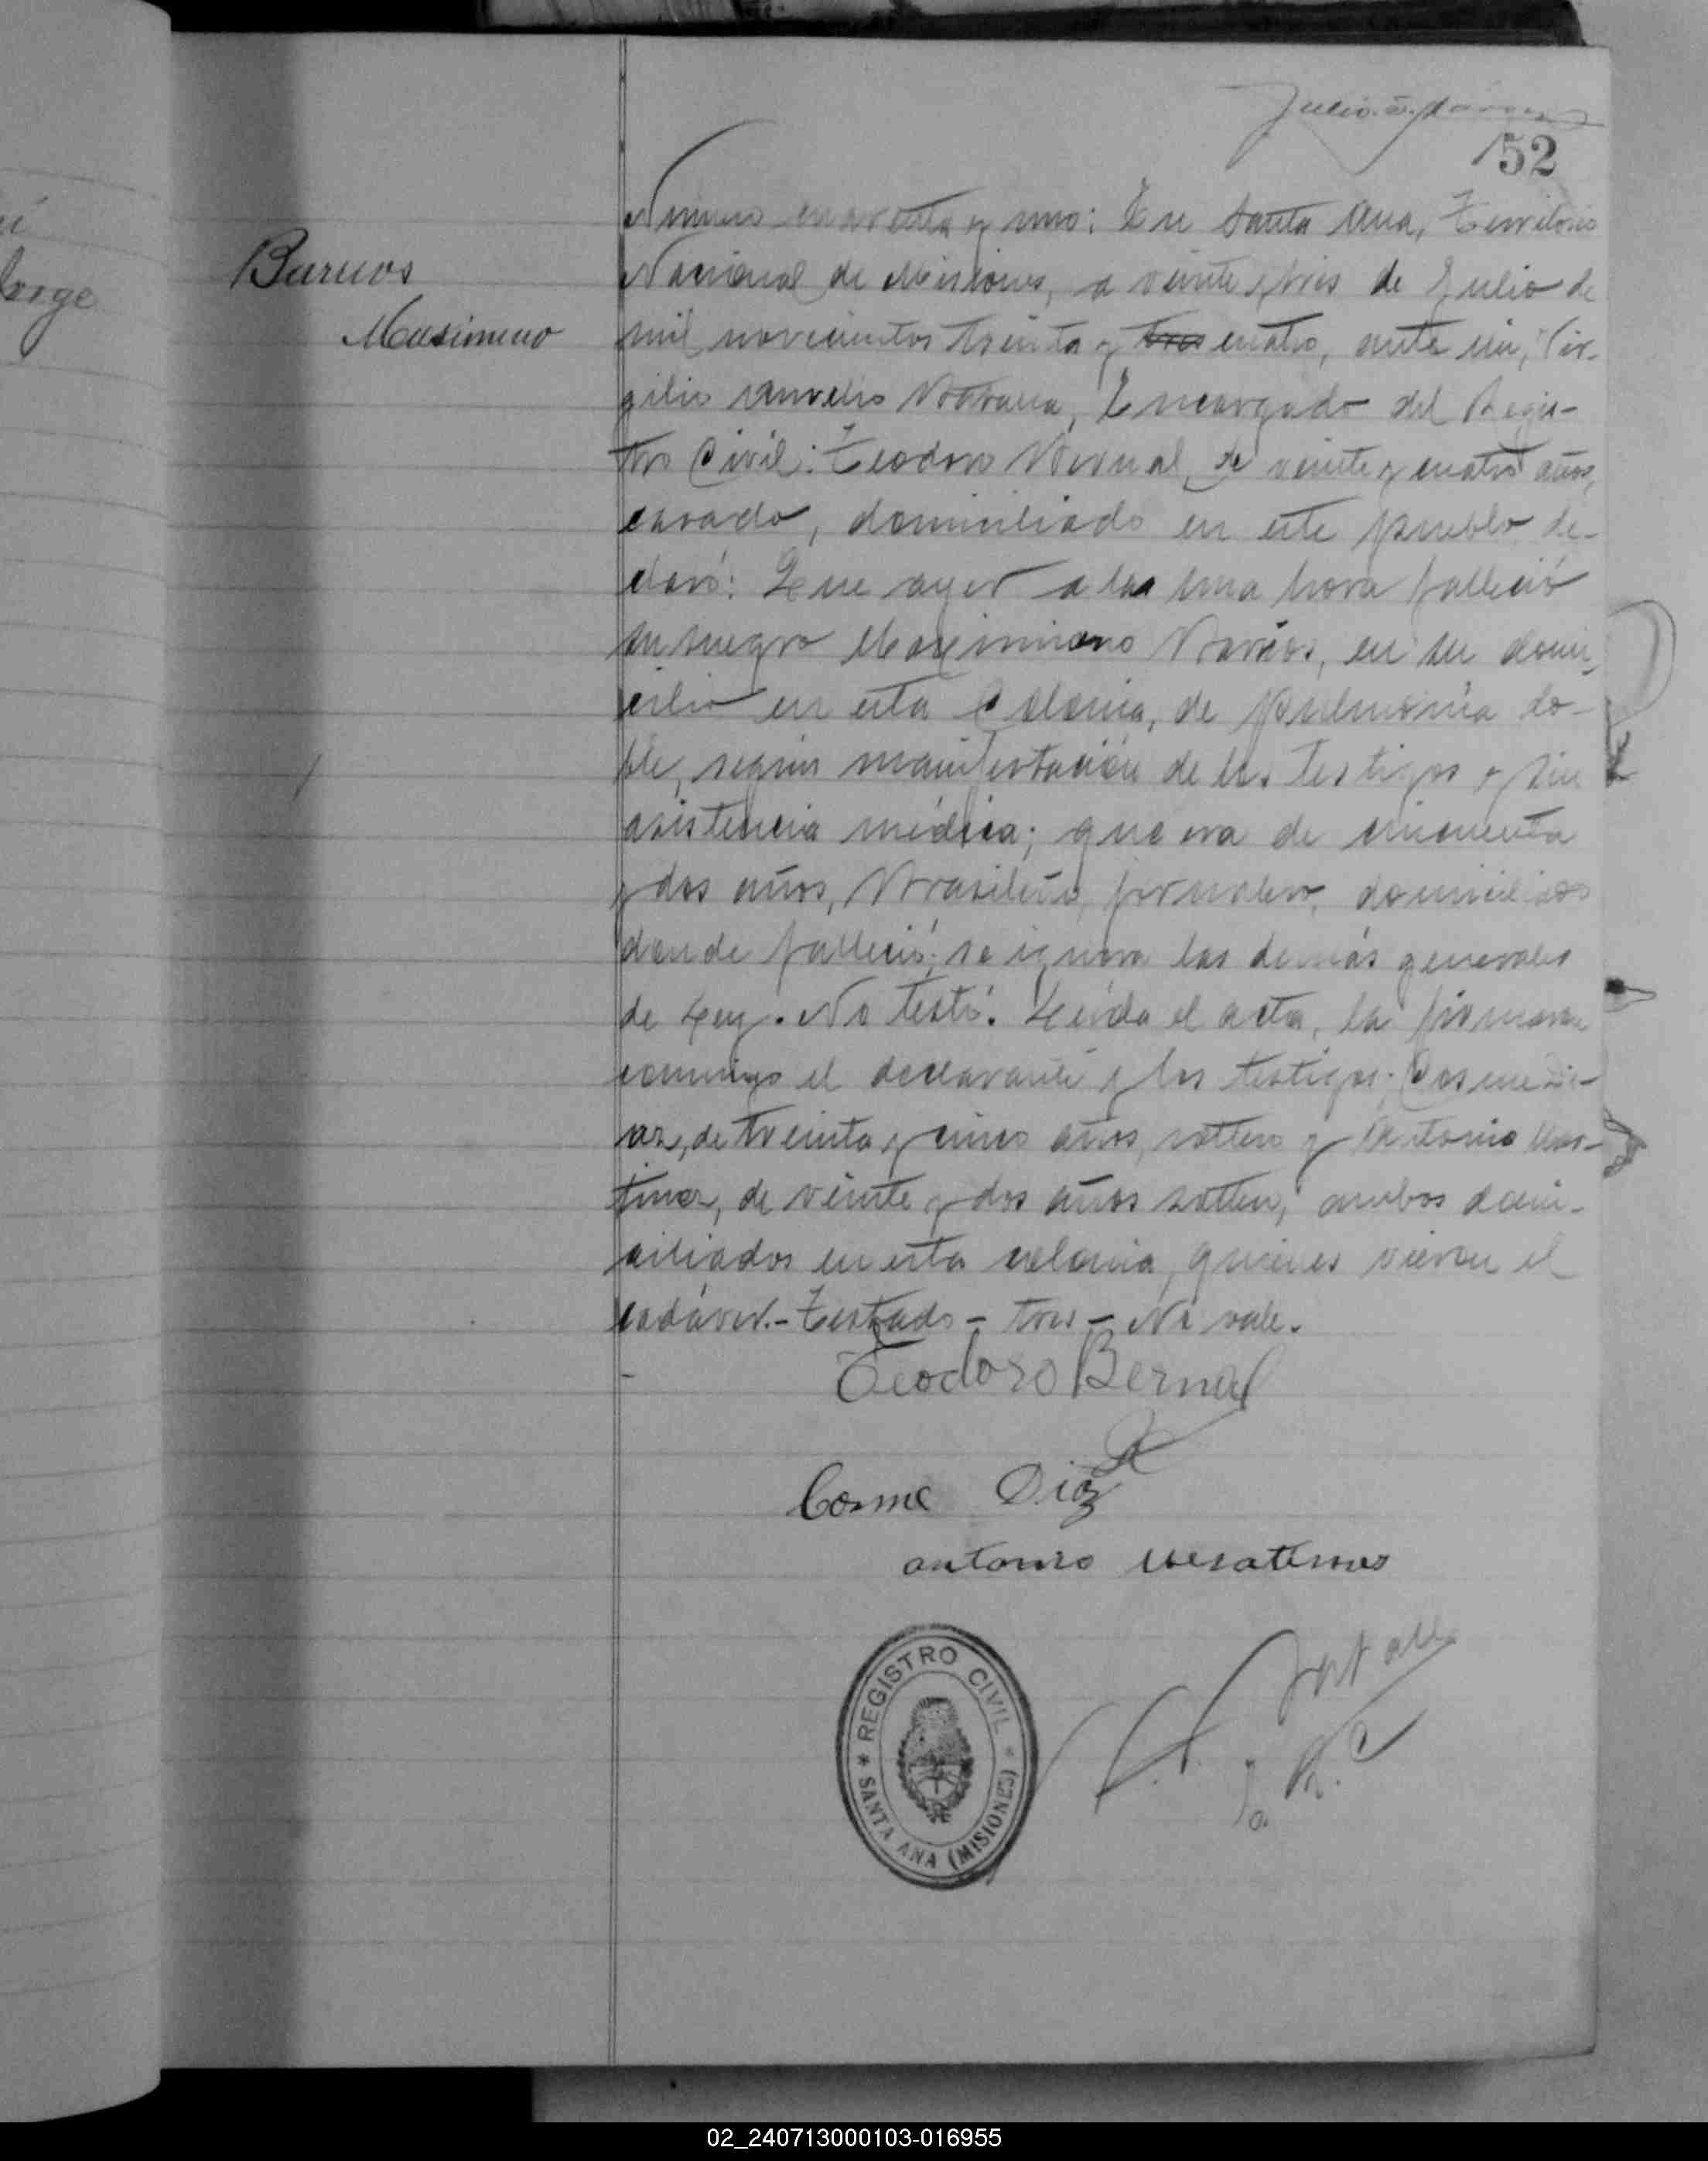 52
Barrios
Numero cuarenta y uno: En Santa Ana, Territorio
Nacional de Misiones, a veinte y tres de Julio de
mil novecientos treinta y tres cuatro, ante mi, Vir-
gilio Encargado del Regis-
tro Civil: Teodoro Bernal, de veinte y cuatro años,
casado, domiciliado en este pueblo de-
claró: Que ayer a las una hora falleció
su suegro Maximiano Barrios, en su domi-
cilio en esta Colonia, de pulmonia do-
ble, según manifestación de los testigos y sin
asistencia médica; que era de cincuenta
y dos años, Brasileño, jornalero, domiciliado
donde falleció; se ignora las demás generales
de Ley. No testó. Leída el acta, la firmaron
conmigo el declarante y los testigos: Cosme Di-
az, de treinta y cinco años, soltero y Antonio Mar-
tinez, de veinte y dos años soltero, ambos domi-
ciliados en esta colonia, quienes vieron el
cadáver.- Testado - tres - No vale.
Teodoro Bernal
Cosme Diaz
antonio
REGISTRO CIVIL
SANTA ANA (MISIONES)
02_240713000103-016955